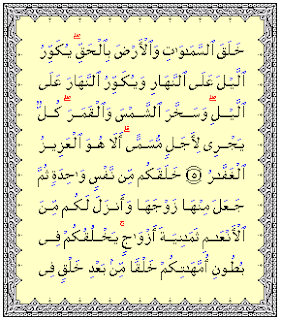 خَلَقَ ٱلسَّمَٰوَٰتِ وَٱلْأَرْضَ بِٱلْحَقِّ ۖ يُكَوِّرُ
ٱلَّيْلَ عَلَى ٱلنَّهَارِ وَيُكَوِّرُ ٱلنَّهَارَ عَلَى
ٱلَّيْلِ ۖ وَسَخَّرَ ٱلشَّمْسَ وَٱلْقَمَرَ ۖ كُلٌّ
يَجْرِى لِأَجَلٍ مُّسَمًّى ۗ أَلَا هُوَ ٱلْعَزِيزُ
ٱلْغَفَّٰرُ ۝٥ خَلَقَكُم مِّن نَّفْسٍ وَٰحِدَةٍ ثُمَّ
جَعَلَ مِنْهَا زَوْجَهَا وَأَنزَلَ لَكُم مِّنَ
ٱلْأَنْعَٰمِ ثَمَٰنِيَةَ أَزْوَٰجٍ ۚ يَخْلُقُكُمْ فِى
بُطُونِ أُمَّهَٰتِكُمْ خَلْقًا مِّنۢ بَعْدِ خَلْقٍ فِى